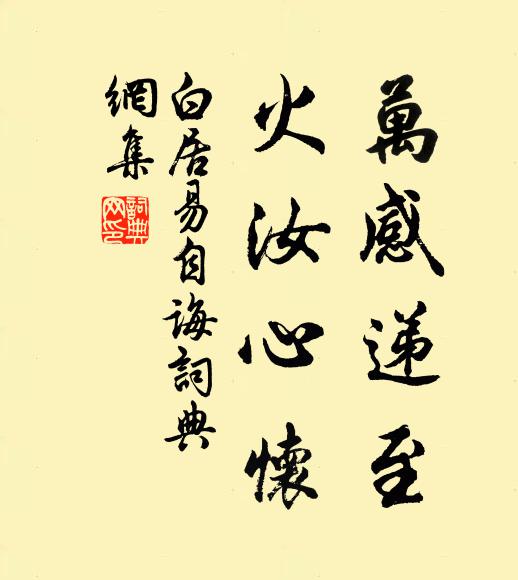 萬感递至
火汝心懷
白居易自誨詞典
網集
詞典
网印